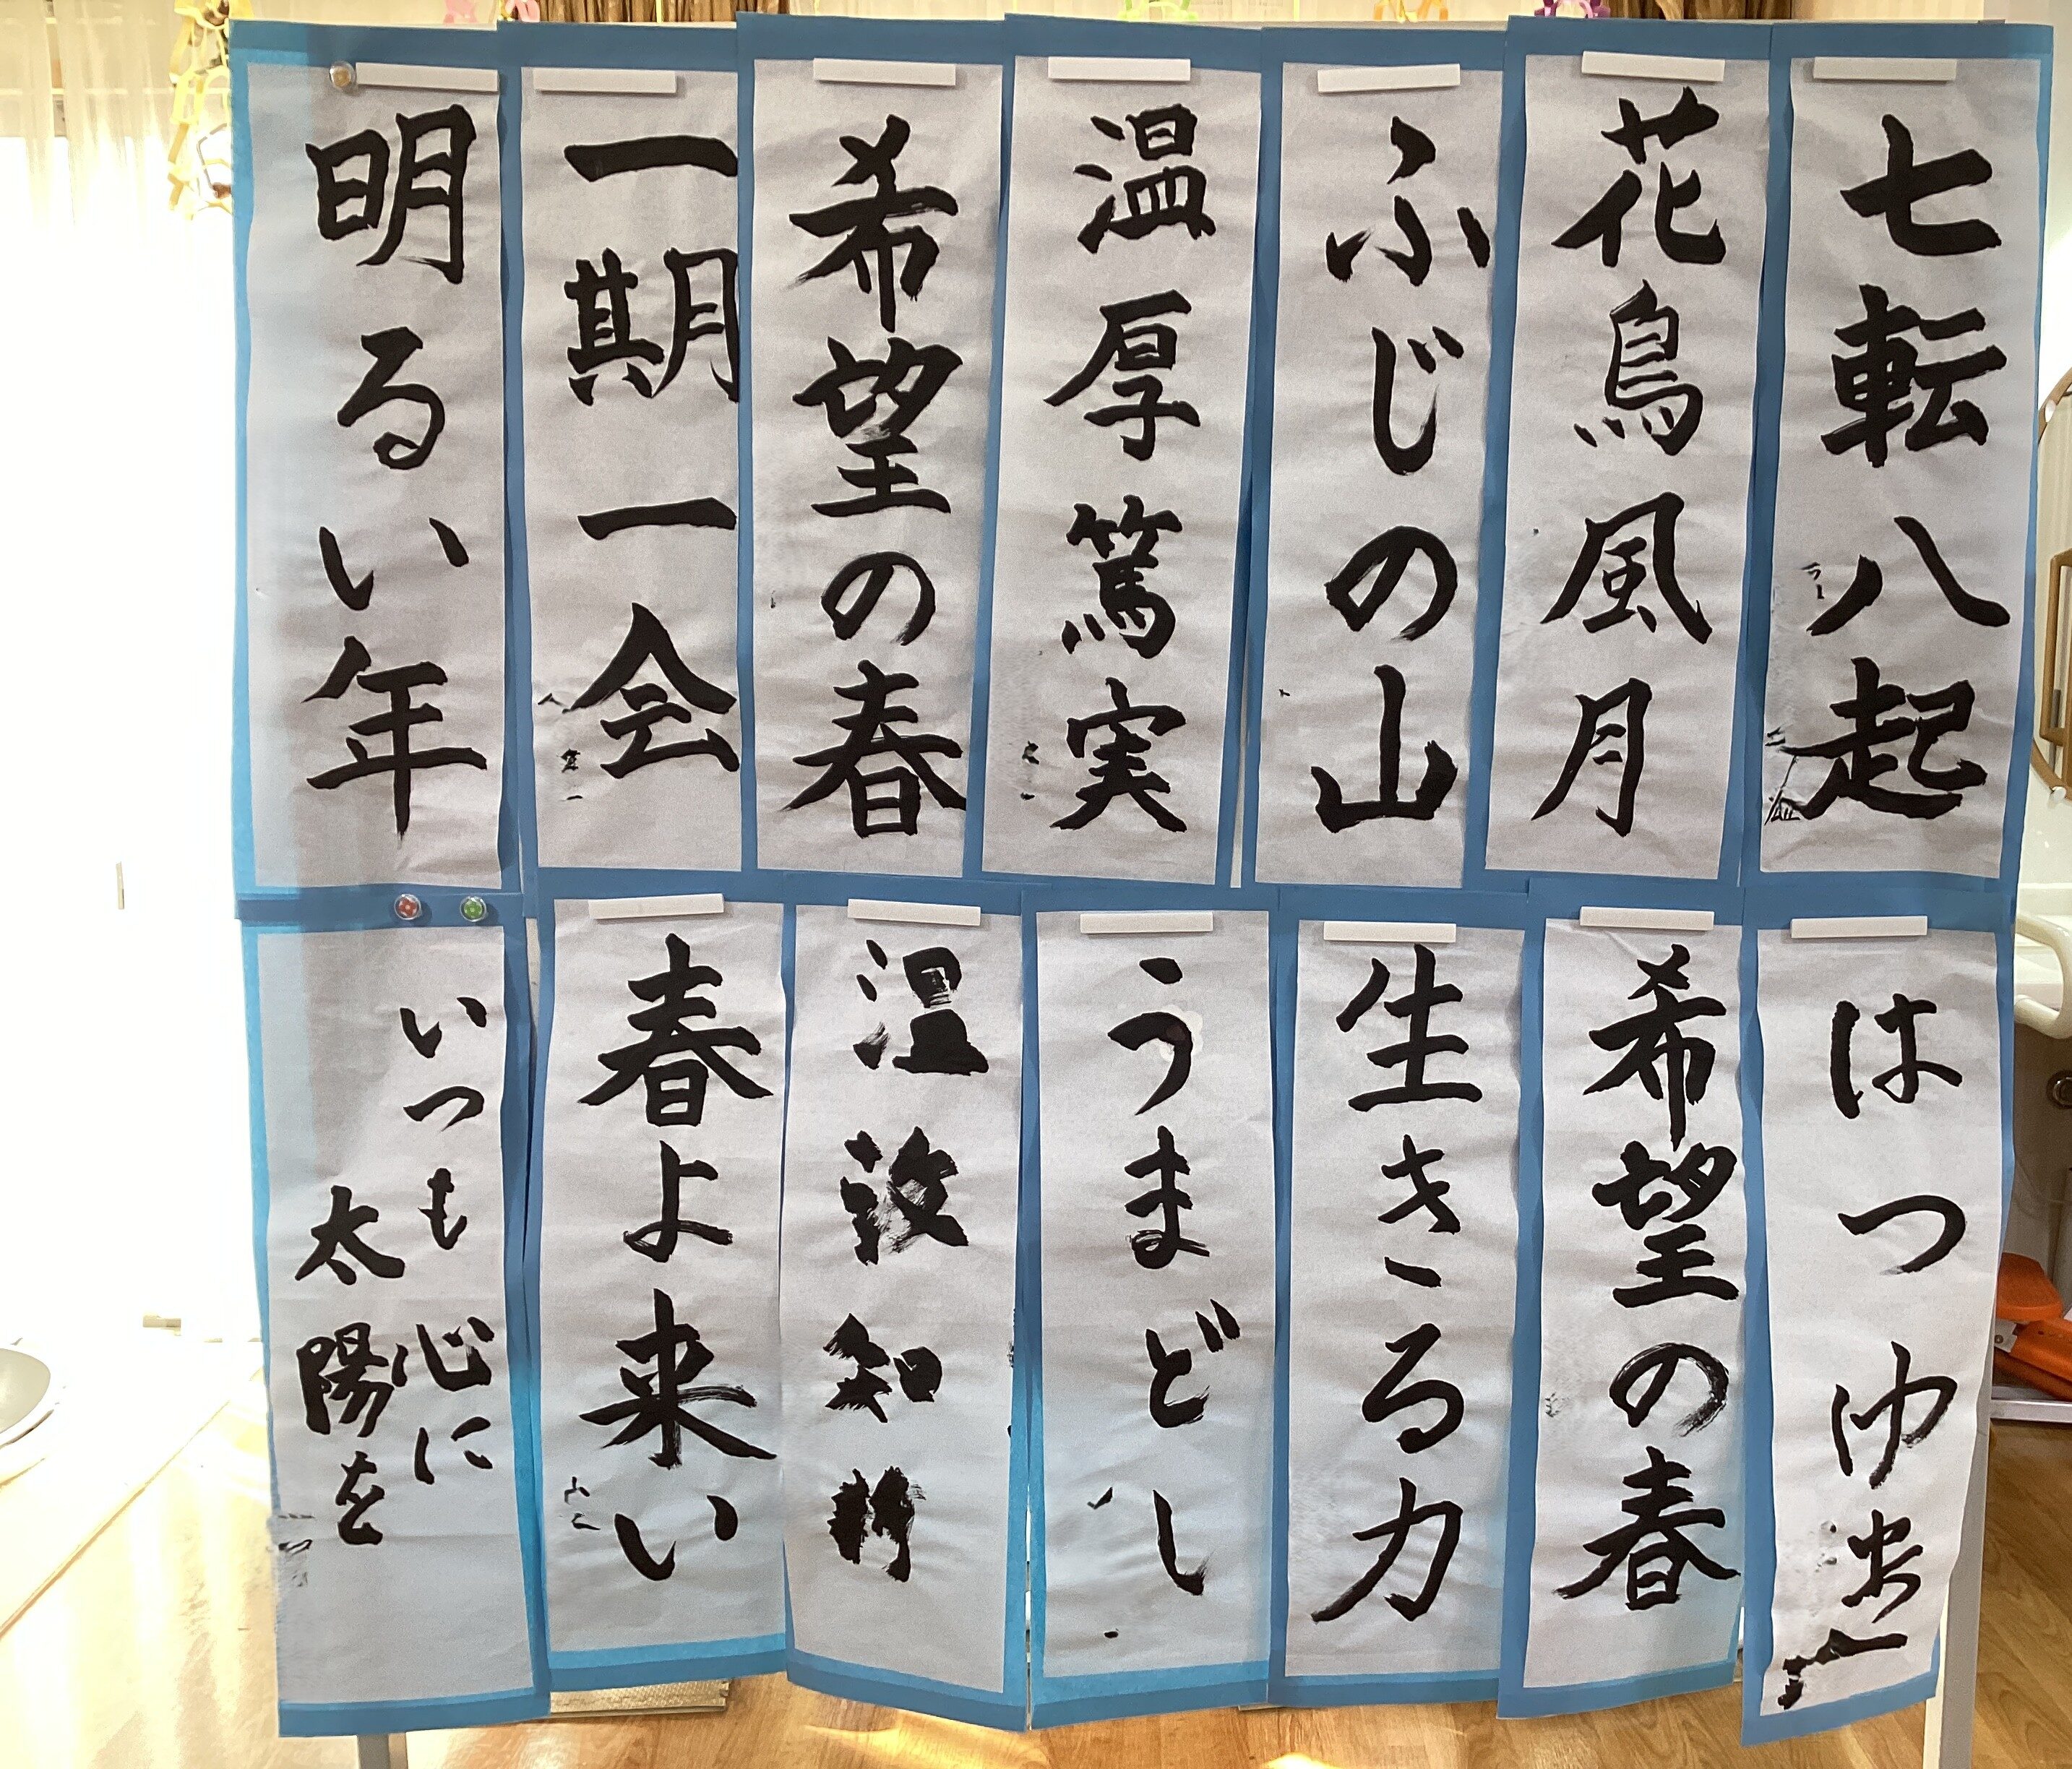 七転八起
花鳥風月
ふじの山
温厚篤実
希望の春
一期一会
明るい年
はつゆ
希望の春
生きる力
うまどし
温故知新
春よ来い
いつも心に
太陽を